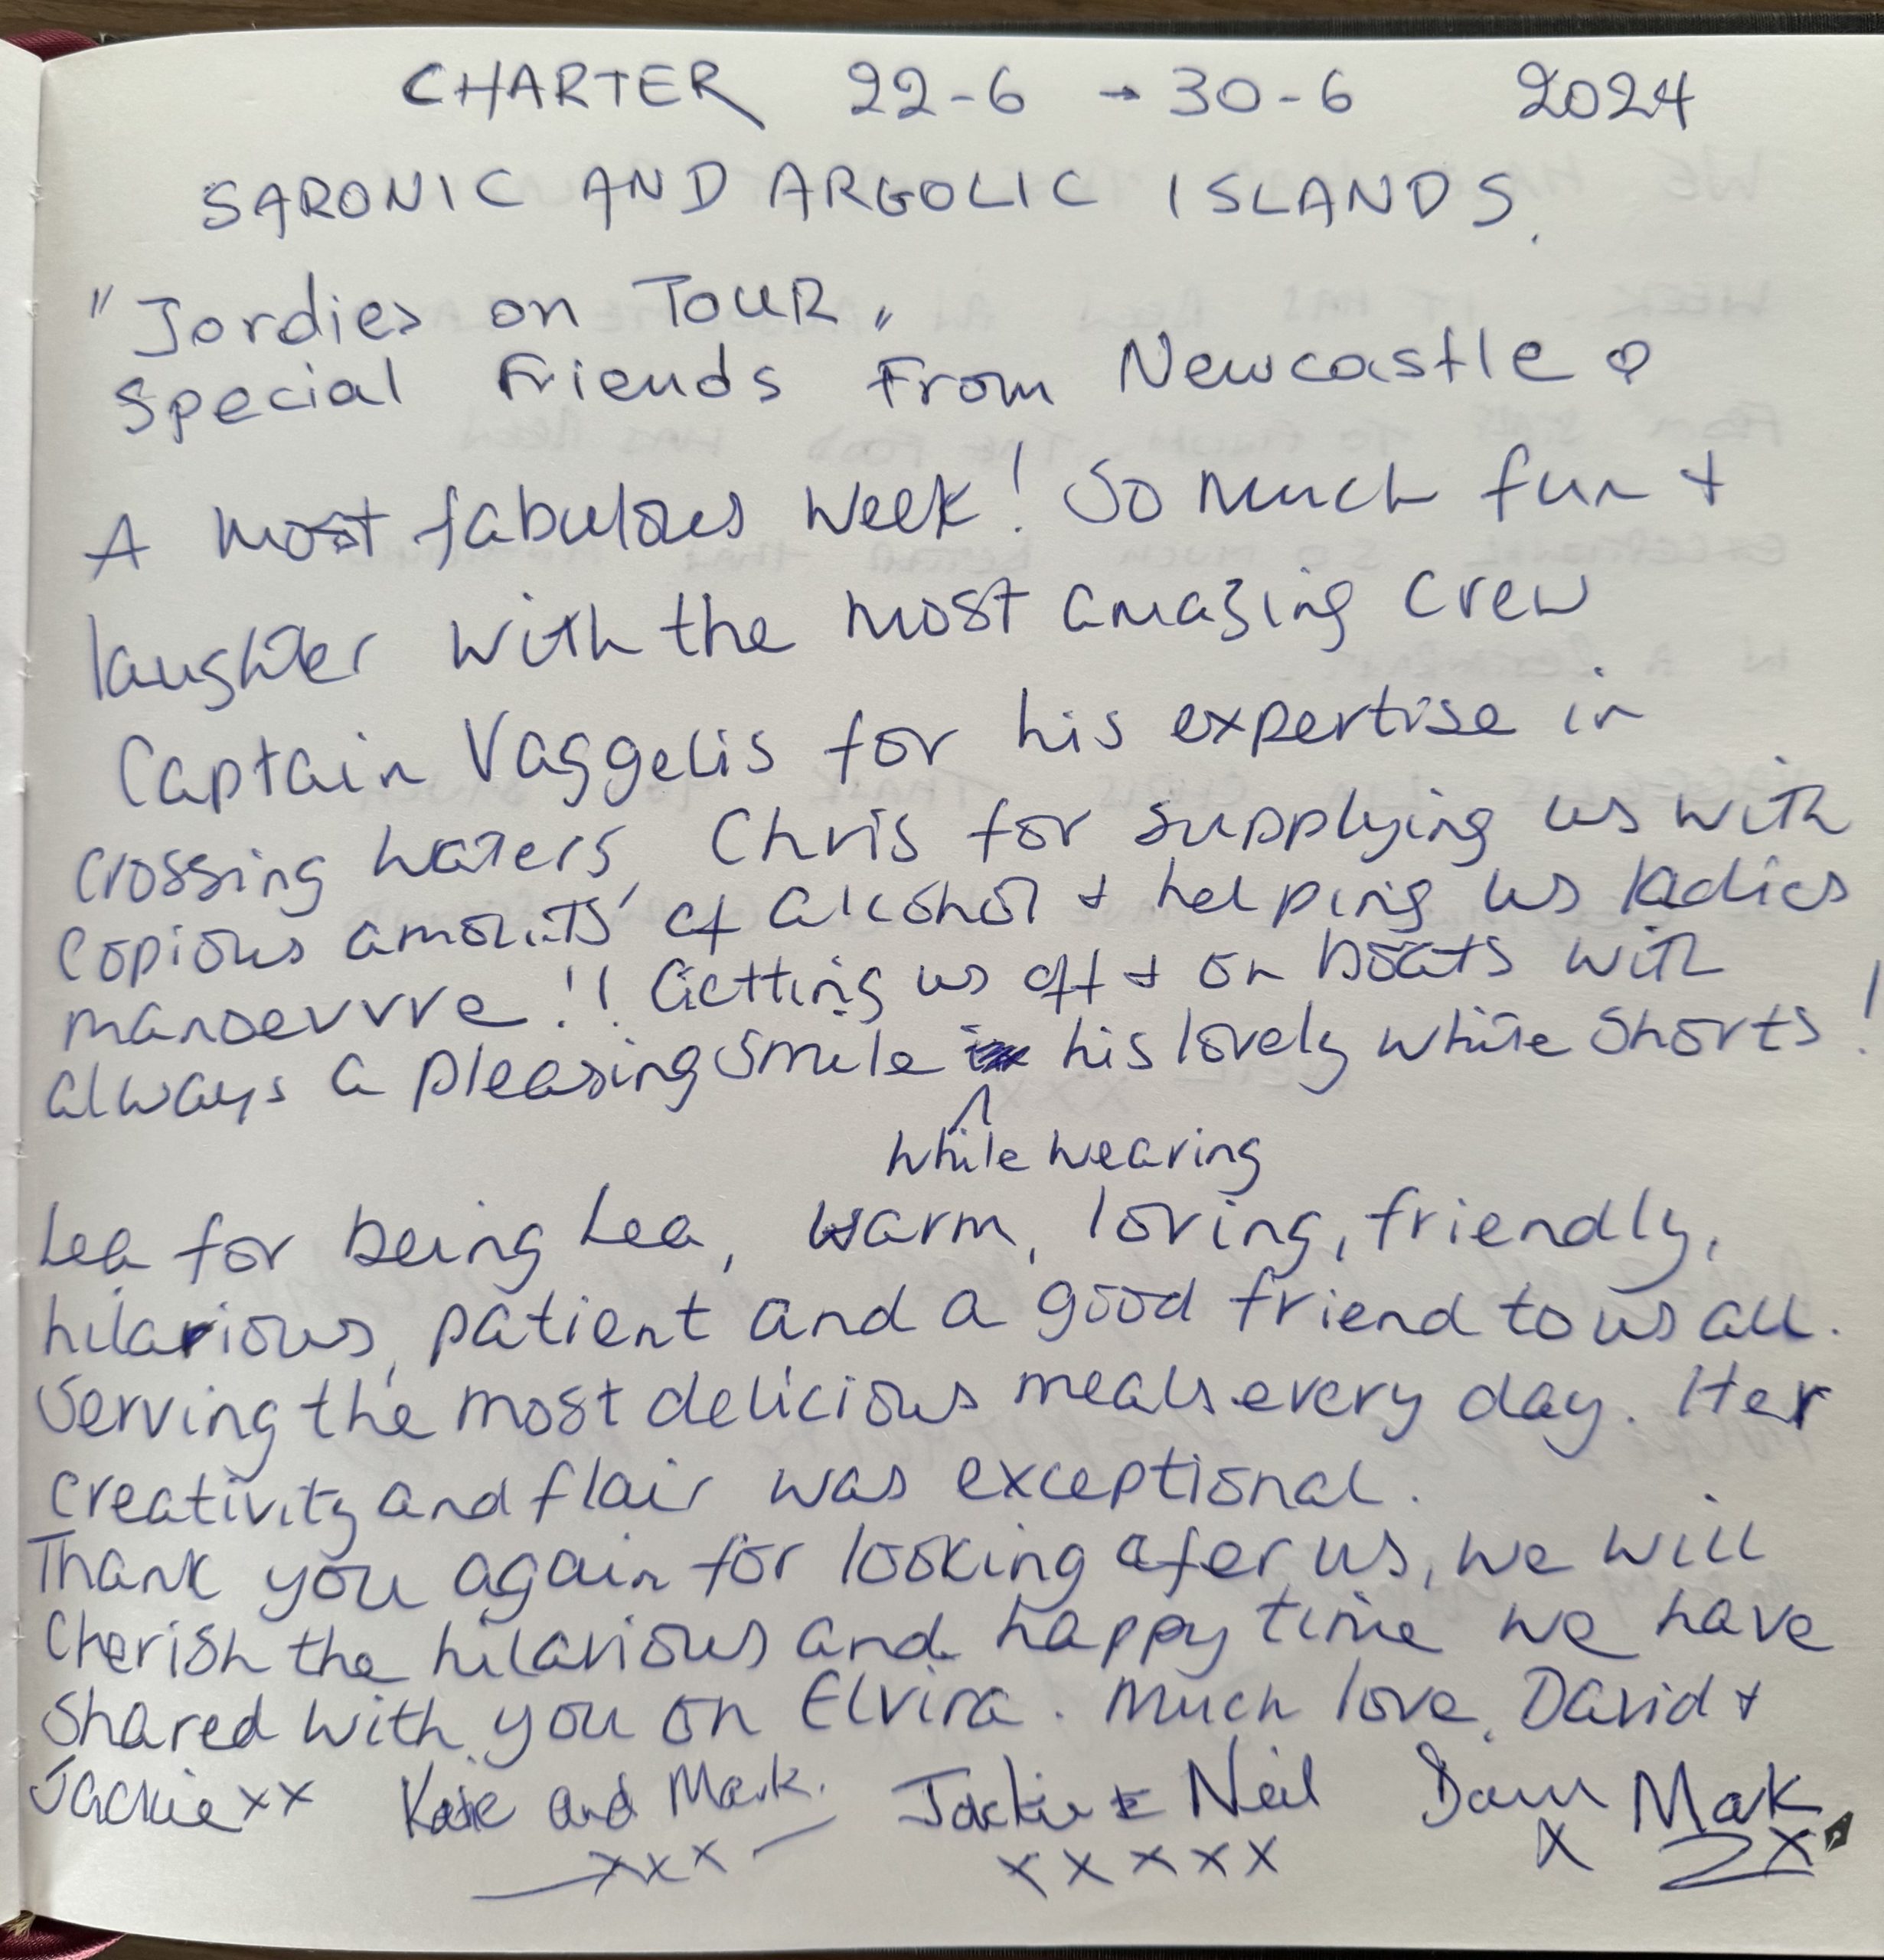 CHARTER 22-6 → 30-6 2024
SARONIC AND ARGOLIC ISLANDS.
"Jordies on TOUR"
Special Friends From Newcastle ♡
A most fabulous week! So much fun +
laughter with the most amazing crew.
Captain Vaggelis for his expertise in
crossing waters, Chris for supplying us with
copious amounts of alcohol + helping us ladies
manoevvre!! Getting us off + on boats with
always a pleasing smile his lovely white shorts!
while wearing
Lea for being Lea, warm, loving, friendly,
hilarious, patient and a good friend to us all.
Serving the most delicious meals every day. Her
creativity and flair was exceptional.
Thank you again for looking afer us, we will
cherish the hilarious and happy time we have
shared with you on Elvira. Much love, David +
Jackie xx Katie and Mark. Jackie & Neil Dawn Mark
xxx xxxxx x 2x